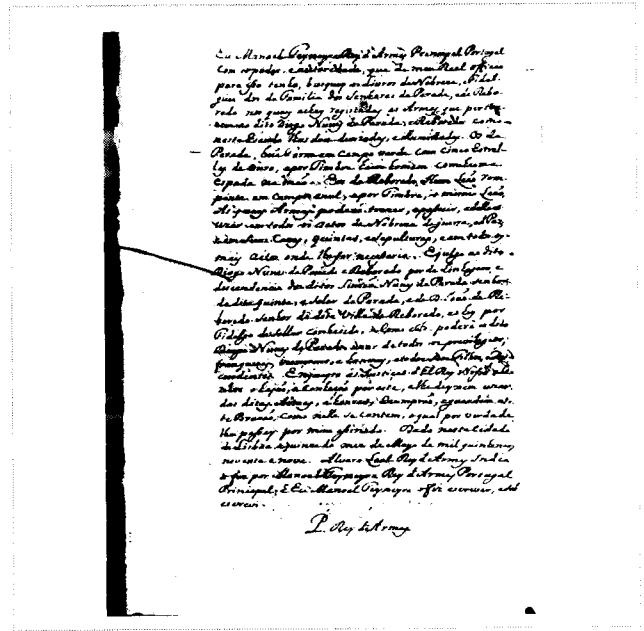 Eu Manoel Teyxeyra Rey d'Armes Principal Portugal
Com os poderes, e autoridade, que de meu Real officio
para isso tenho, busquey os Livros da Nobreza, e Fidal-
guia dos da Familia dos Senhores da Parada, e de Rebo-
redo nos quaes achey registadas as Armas, que perte-
dito Diogo Nunes da Parada, e Reboredo como
neste Escudo lhas dou
Parada, em Campo verde com cinco Estrel-
las de Ouro, e por Timbre hum homem com huma
espada na mão. Os do Reboredo, Hum Leão rom-
pente em Campo azul, e por Timbre, o mesmo Leão,
As quaes Armas poderá trazer, e
uzar em todos os actos da Nobreza de guerra, e Paz,
Cazas, Quintas, e sepulturas, e em todos os
mais actos onde lhe for necessario. E julgo ao dito
Diogo Nunes da Parada e Reboredo por de Linhagem, e
descendencia dos ditos Simão Nunes da Parada senhor
da dita Quinta, e solar da Parada, e de D. João de Re-
boredo senhor da dita Villa de Reboredo, e o hey por
Fidalgo de sollar conhecido, e Como esto poderá o dito
Diogo Nunes da Parada uzar de todos os privilegios,
e honras, e todos seus filhos, e Des-
cendentes. as Justiças d'El Rey Nosso
por este, e lhe deyxem uzar
das ditas Armas, e honras, Cumprão, e guardem es-
te Brazão, Como nelle se contem, o qual por verdade
lhe passey por mim asinado. Dado nesta Cidade
de Lisboa a quinze do mes de Mayo de mil quinhentos
noventa e nove. Alvaro Leal Rey d'Armas India
o fiz por Manoel Teyxeyra Rey d'Armas Portugal
Principal; E Eu Manoel Teyxeyra o fiz escrever, e sob
escrevi.
P. Rey de Armas